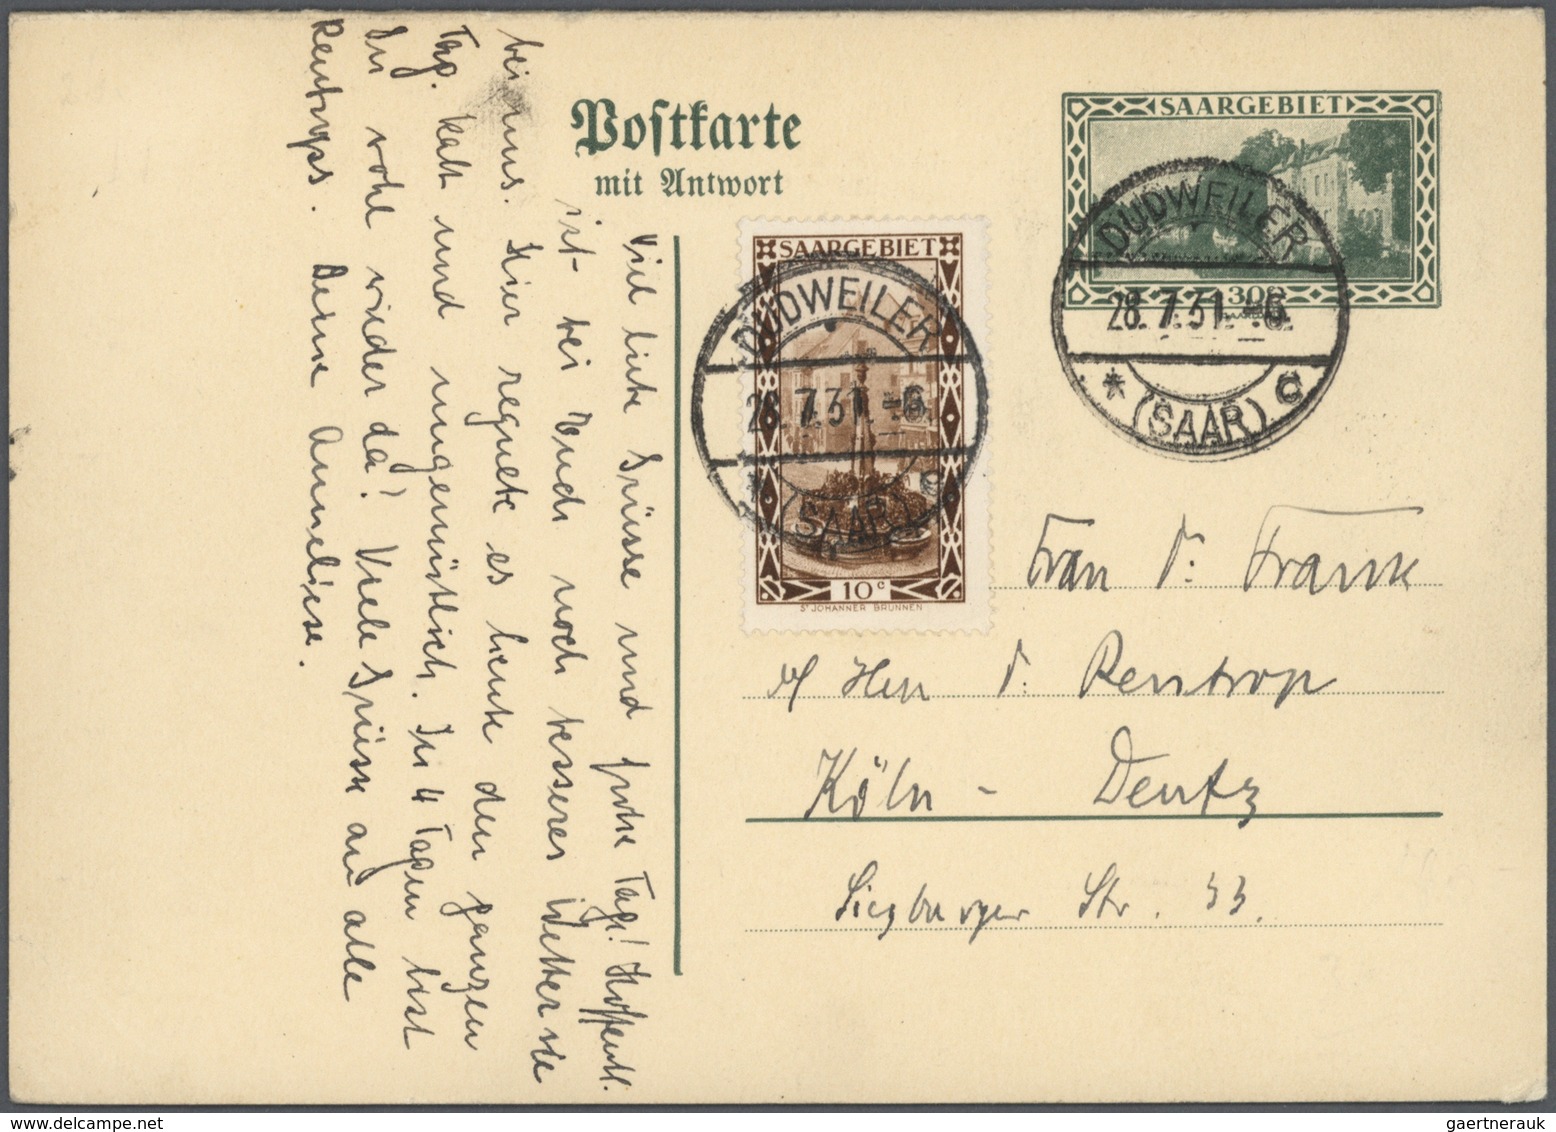 Postkarte
mit Antwort
SAARGEBIET
30c
DUDWEILER
28.7.31.-6
* (SAAR) c
SAARGEBIET
10c
ST JOHANNER BRUNNEN
DUDWEILER
28.7.31.-6
* (SAAR) c
Frau Dr. Franke
b/ Herr Dr. Rentrop
Köln - Deutz
Siegburger Str. 33.
Viel liebe Grüsse und frohe Tage! Hoffentl.
ist bei Euch noch besseres Wetter wie
bei uns. Hier regnete es heute den ganzen
Tag. Kalt und ungemütlich. In 4 Tagen bist
Du wohl wieder da? Viele Grüsse an alle
Rentrops. Deine Anneliese.
gaertnerauk